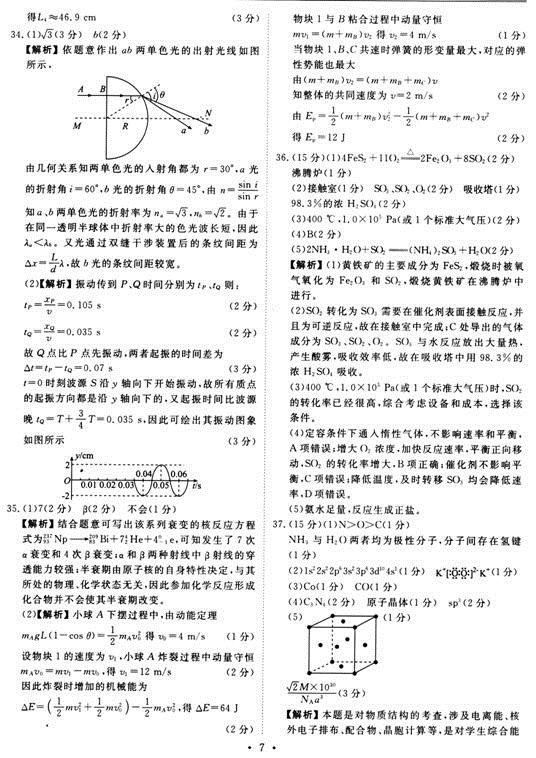 得L₁≈46.9 cm (3分)
34.(1)√3(3分) b(2分)
【解析】依题意作出 ab 两单色光的出射光线如图
所示,
A B r i θ
M R N
a b
由几何关系知两单色光的入射角都为 r=30°,a 光
的折射角 i=60°,b 光的折射角 θ=45°,由 n=sin i/sin r
知 a、b 两单色光的折射率为 nₐ=√3,n_b=√2。由于
在同一透明半球体中折射率大的色光波长短,因此
λₐ<λ_b。又光通过双缝干涉装置后的条纹间距为
Δx=L/d λ,故 b 光的条纹间距较宽。
(2)【解析】振动传到 P、Q 时间分别为 t_P、t_Q 则:
t_P=x_P/v=0.105 s (2分)
t_Q=x_Q/v=0.035 s (2分)
故 Q 点比 P 点先振动,两者起振的时间差为
Δt=t_P-t_Q=0.07 s (3分)
t=0 时刻波源 S 沿 y 轴向下开始振动,故所有质点
的起振方向都是沿 y 轴向下的,又起振时间比波源
晚 t_Q=T+3/4 T=0.035 s,因此可绘出其振动图象
如图所示 (3分)
y/cm
2 0.04 0.06
0 0.01 0.02 0.03 0.05 t/s
-2
35.(1)7(2分) β(2分) 不会(1分)
【解析】结合题意可写出该系列衰变的核反应方程
式为²³⁷₉₃Np→²⁰⁹₈₃Bi+7⁴₂He+4⁰₋₁e,可知发生了 7 次
α 衰变和 4 次 β 衰变;α 和 β 两种射线中 β 射线的穿
透能力较强;半衰期由原子核的自身特性决定,与其
所处的物理、化学状态无关,因此参加化学反应形成
化合物并不会使其半衰期改变。
(2)【解析】小球 A 下摆过程中,由动能定理
m_A gL(1-cos θ)=1/2 m_A v₀² 得 v₀=4 m/s (1分)
设物块 1 的速度为 v₁,小球 A 炸裂过程中动量守恒
m_A v₀=mv₁-mv₀,得 v₁=12 m/s (2分)
因此炸裂时增加的机械能为
ΔE=(1/2 mv₁²+1/2 mv₀²)-1/2 m_A v₀²,得 ΔE=64 J
(2分)
物块 1 与 B 粘合过程中动量守恒
mv₁=(m+m_B)v₂ 得 v₂=4 m/s (1分)
当物块 1、B、C 共速时弹簧的形变量最大,对应的弹
性势能也最大
由(m+m_B)v₂=(m+m_B+m_C)v
知整体的共同速度为 v=2 m/s (2分)
由 E_p=1/2(m+m_B)v₂²-1/2(m+m_B+m_C)v²
得 E_p=12 J (2分)
36.(15 分)(1)4FeS₂+11O₂=△=2Fe₂O₃+8SO₂(2分)
沸腾炉(1分)
(2)接触室(1分) SO₃、SO₂、O₂(2分) 吸收塔(1分)
98.3%的浓 H₂SO₄(2分)
(3)400 ℃,1.0×10⁵ Pa(或 1 个标准大气压)(2分)
(4)B(2分)
(5)2NH₃·H₂O+SO₂=(NH₄)₂SO₃+H₂O(2分)
【解析】(1)黄铁矿的主要成分为 FeS₂,煅烧时被氧
气氧化为 Fe₂O₃ 和 SO₂,煅烧黄铁矿在沸腾炉中
进行。
(2)SO₂ 转化为 SO₃ 需要在催化剂表面接触反应,并
且为可逆反应,故在接触室中完成;C 处导出的气体
成分为 SO₃、SO₂、O₂。SO₃ 与水反应放出大量热,
产生酸雾,吸收效率低,故在吸收塔中用 98.3%的
浓 H₂SO₄ 吸收。
(3)400 ℃,1.0×10⁵ Pa(或 1 个标准大气压)时,SO₂
的转化率已经很高,综合考虑设备和成本,选择该
条件。
(4)定容条件下通入惰性气体,不影响速率和平衡,
A 项错误;增大 O₂ 浓度,加快反应速率,平衡正向移
动,SO₂ 的转化率增大,B 项正确;催化剂不影响平
衡,C 项错误;降低温度,及时转移 SO₃ 均会降低速
率,D 项错误。
(5)氨水足量,反应生成正盐。
37.(15 分)(1)N>O>C(1分)
NH₃ 与 H₂O 两者均为极性分子,分子间存在氢键
(1分)
(2)1s²2s²2p⁶3s²3p⁶3d¹⁰4s¹(1分) K⁺[:Ö:Ö:]²⁻K⁺(1分)
(3)Co(1分) CO(1分)
(4)C₃N₄(2分) 原子晶体(1分) sp³(2分)
(5) (1分)
√2M×10³⁰/N_A a³ (3分)
【解析】本题是对物质结构的考查,涉及电离能、核
外电子排布、配合物、晶胞计算等,是对学生综合能
· 7 ·